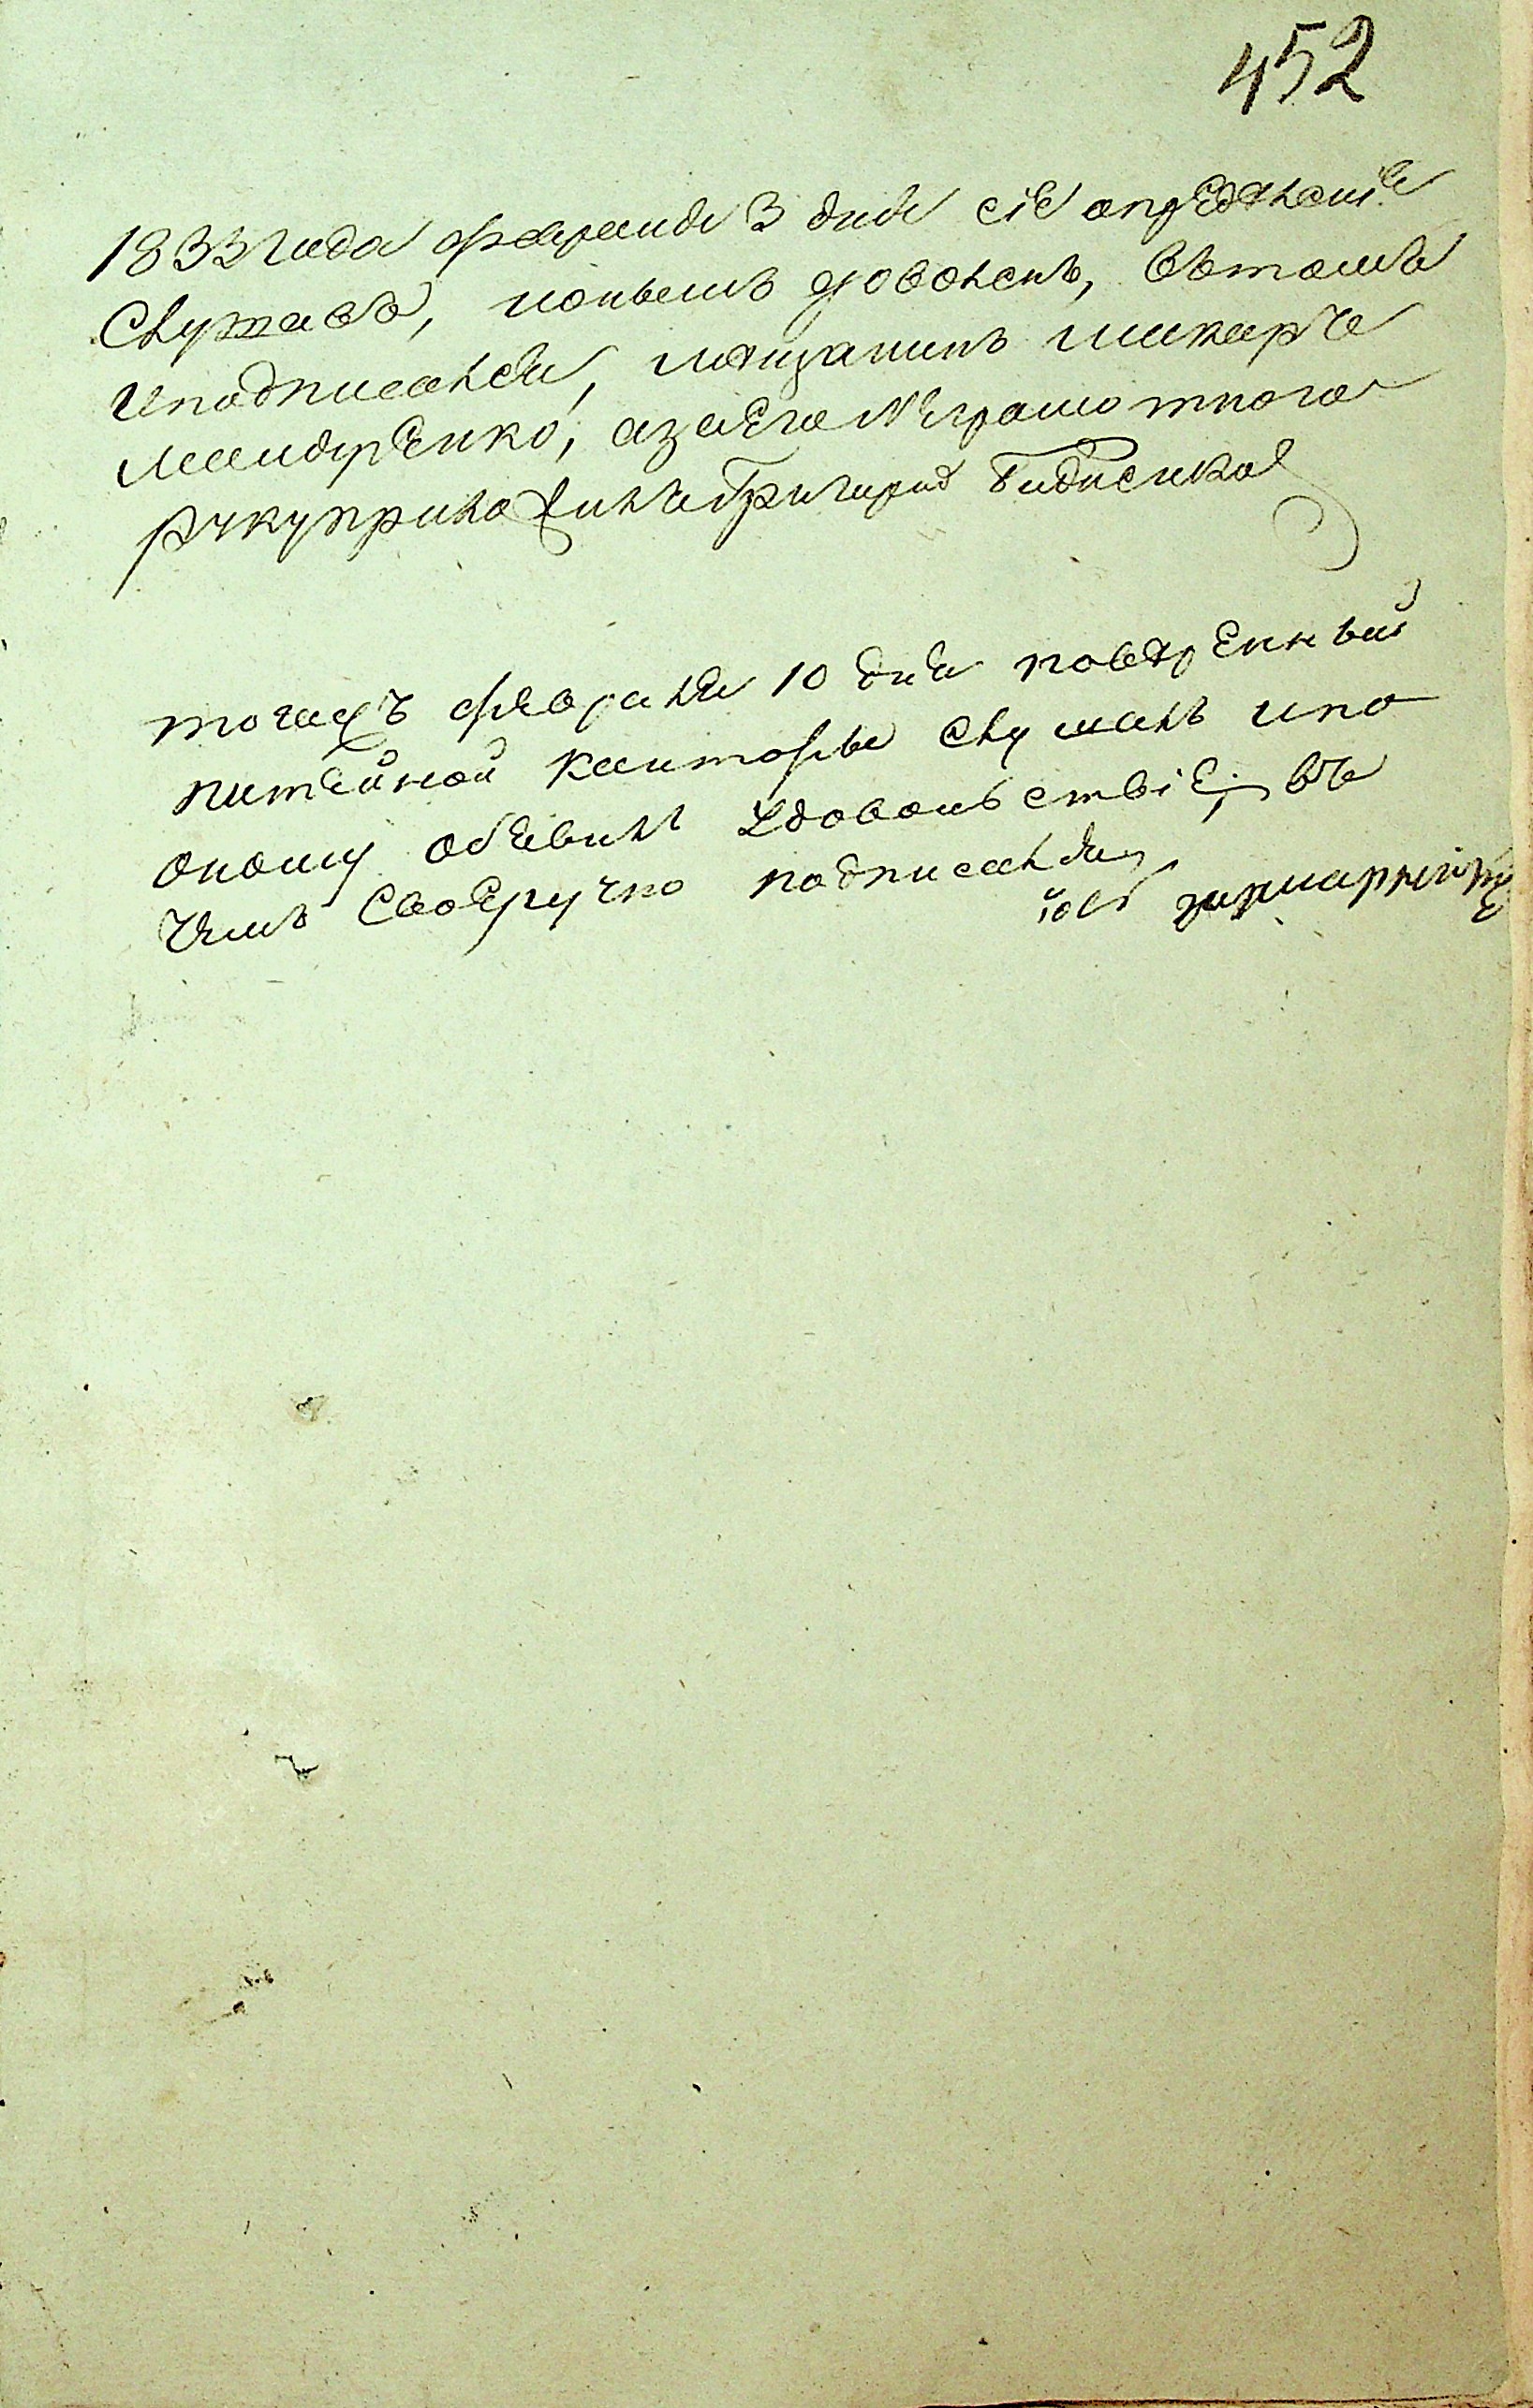 452
1833 года февраля 3 дня сіе опредѣленіе
Слушавъ, поныемъ доволенъ, Вътомъ
иподписался, мѣщанинъ макаръ
мандренко, азаего Неграмотного
рукуприложилъ Григорий
тогожъ февраля 10 дня повѣренный
питейной канторы слушалъ ипо
оному обявилъ Удовольствіе, въ
чемъ своеручно подписался